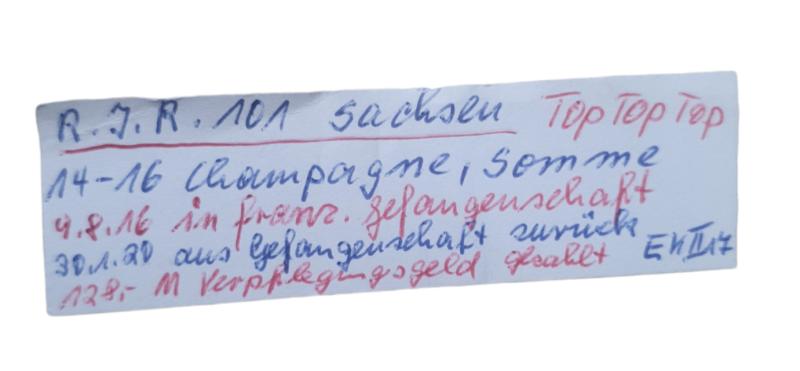 R.J.R. 101 Sachsen Top Top Top
14-16 Champagne, Somme
4.8.16 in franz. Gefangenschaft
30.1.20 aus Gefangenschaft zurück EK II 17
128,- M Verpflegungsgeld gezahlt